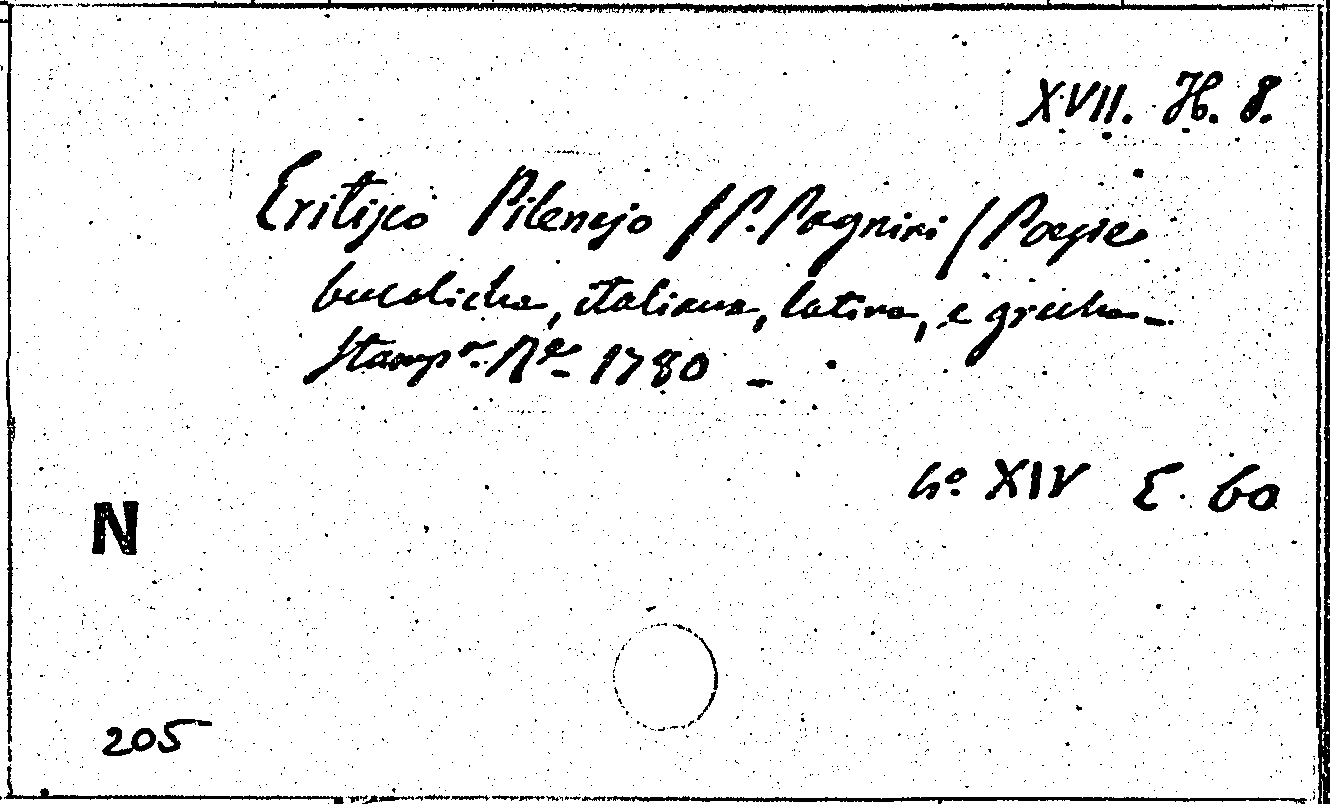 XVII. H. 8.
Eritisco Pilenejo /P. Pagnini/ Poesie
bucoliche, italiane, latine, e greche –
Stamp.ª R.le 1780 –
4º. XIV E. 60
N
205